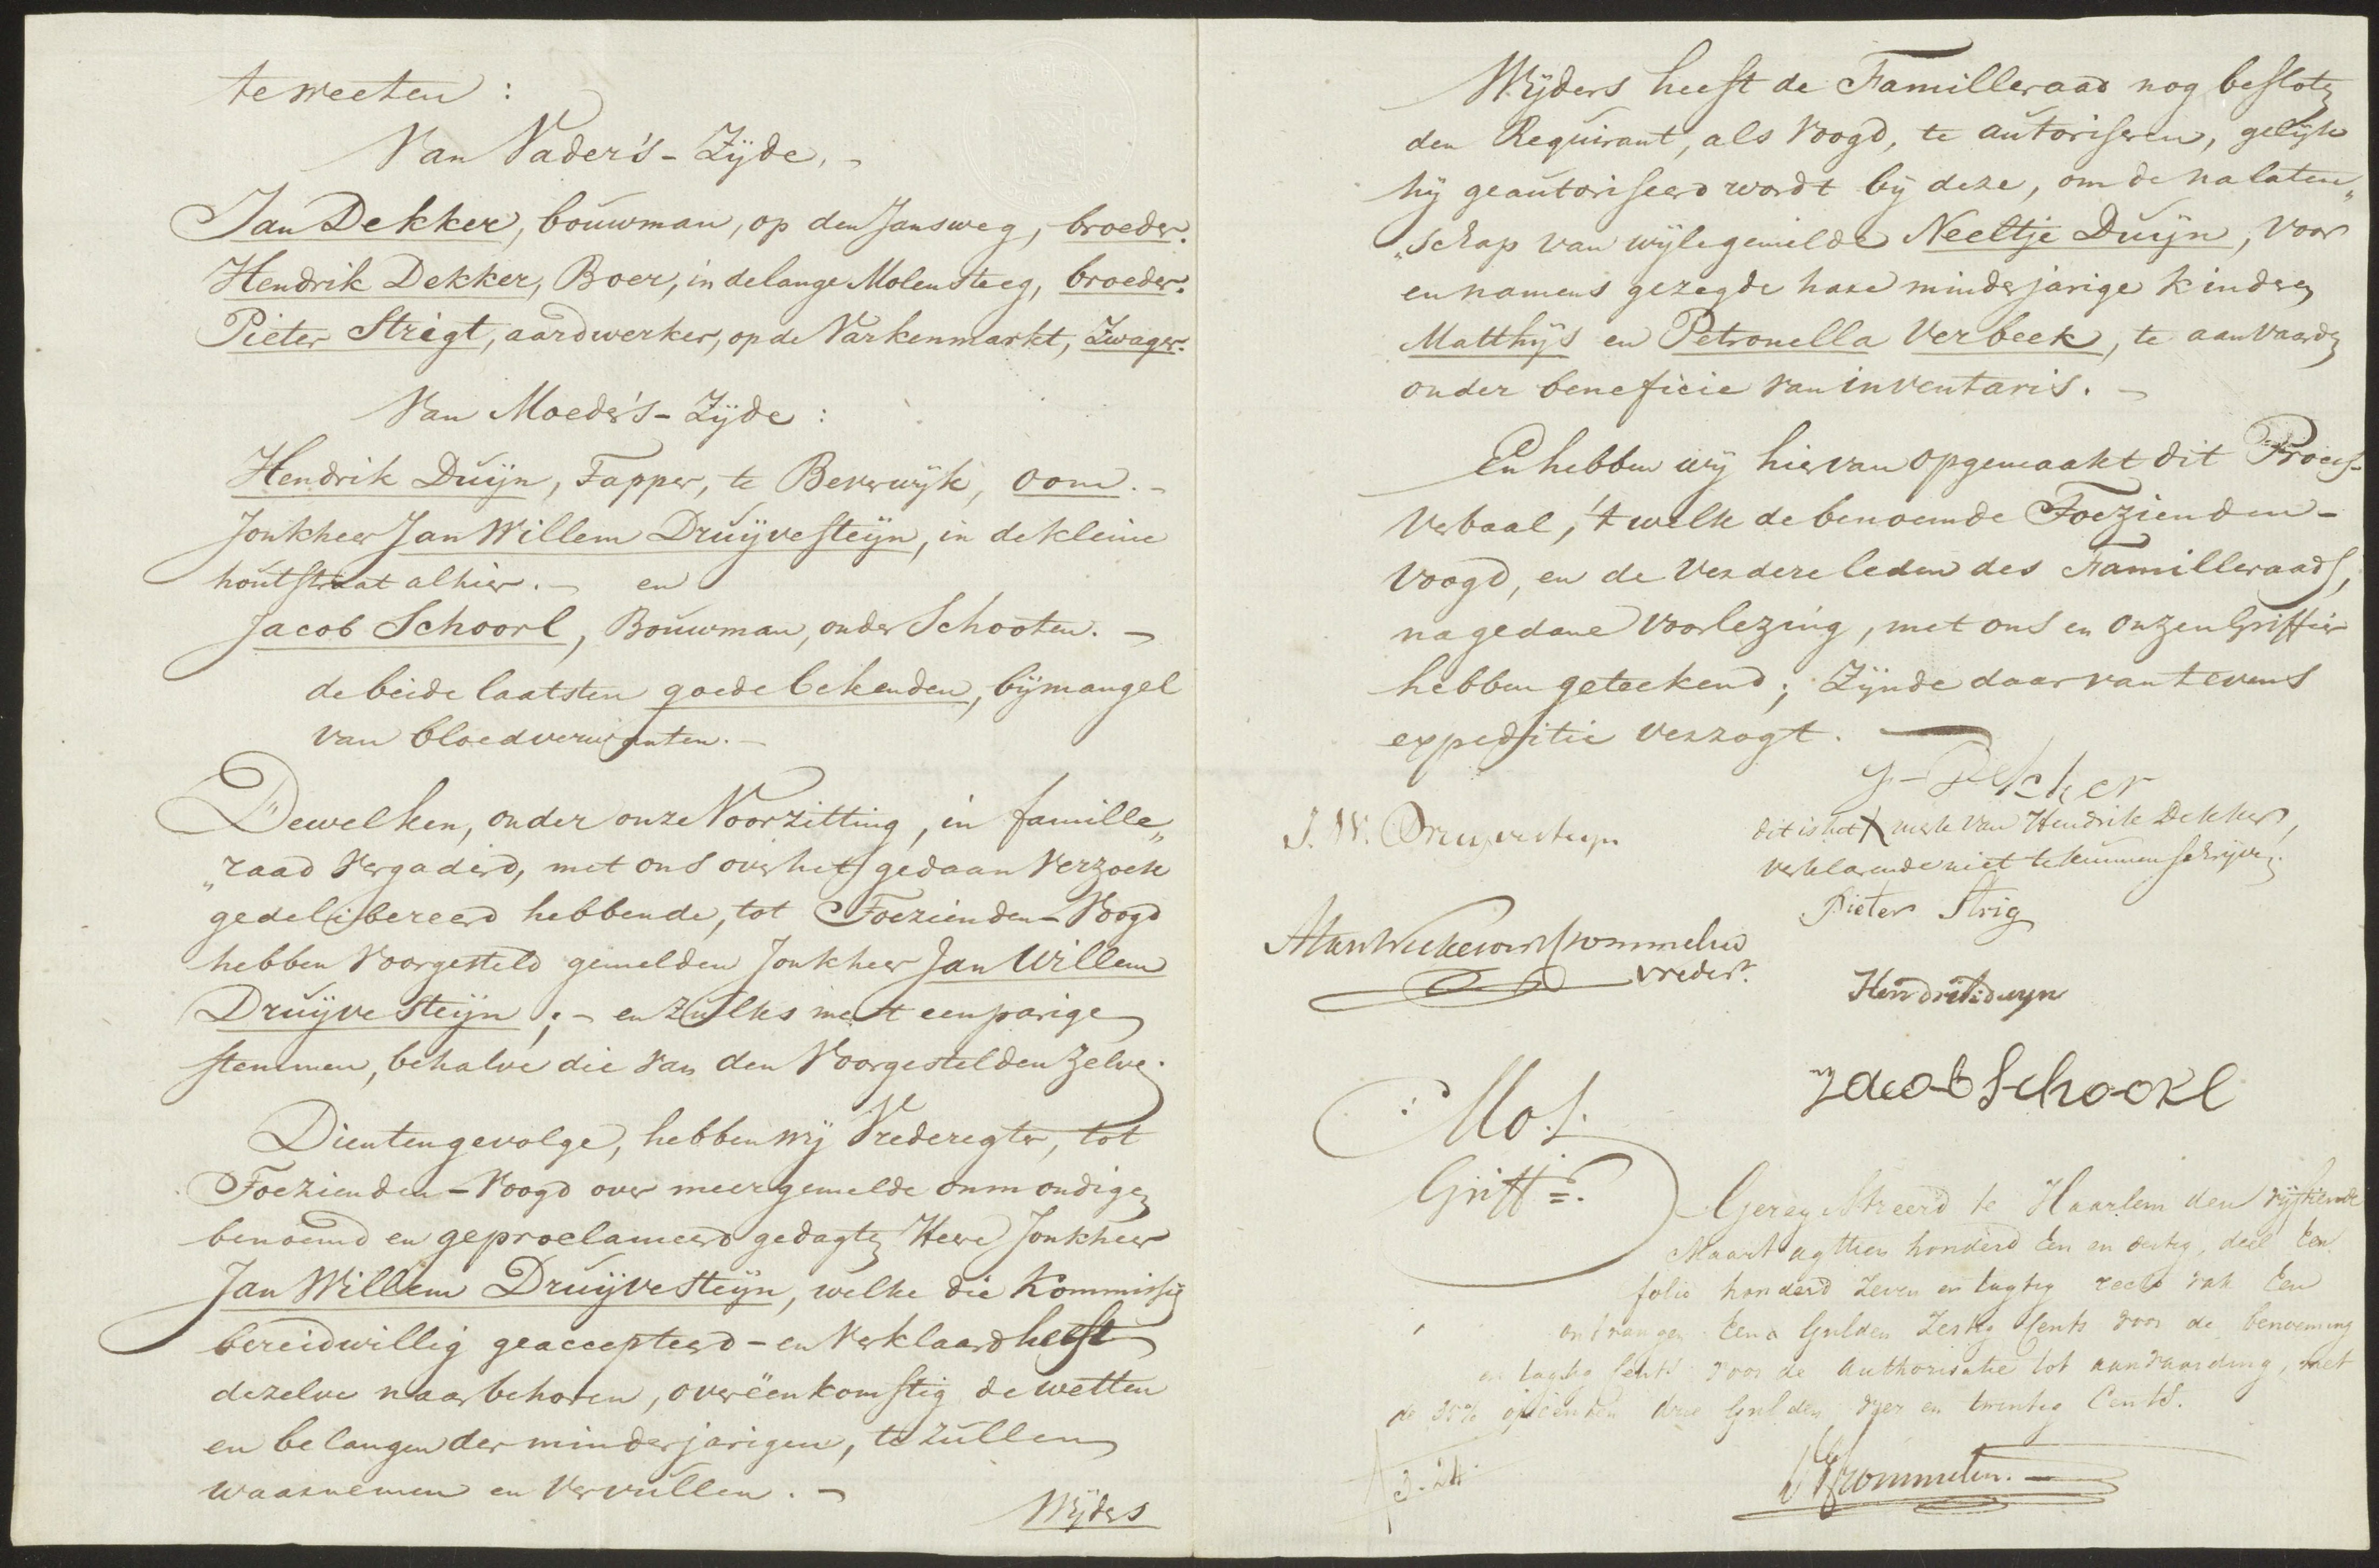 te weeten :
Van Vader's-Zijde, -
Jan Dekker, bouwman, op den Jansweg, broeder.
Hendrik Dekker, Boer, in de lange Molensteeg, broeder.
Pieter Strigt, aardwerker, op de Varkenmarkt, Zwager.
Van Moeder's-Zijde :
Hendrik Duijn, Tapper, te Beverwijk, oom. -
Jonkheer Jan Willem Druijvesteijn, in de kleine
houtstraat alhier. - en
Jacob Schoorl, Bouwman, onder Schooten. -
de beide laatsten goede bekenden, bij mangel
van bloedverwanten. -
Dewelken, onder onze Voorzitting, in famille„
„raad vergaderd, met ons over het gedaan verzoek
gedelibereerd hebbende, tot Toezienden-Voogd
hebben voorgesteld gemelden Jonkheer Jan Willem
Druijvesteijn ; - en zulks met eenparige
stemmen, behalve die van den Voorgestelden zelve.
Dientengevolge, hebben wij Vrederegter, tot
Toezienden-Voogd over meergemelde onmondigen
benoemd en geproclameerd gedagten Heere Jonkheer
Jan Willem Druijvesteijn, welke die Kommissie
bereidwillig geaccepteerd - en verklaard heeft
dezelve naar behoren, overëenkomstig de wetten
en belangen der minderjarigen, te zullen
waarnemen en vervullen. -
Wijders
Wijders heeft de Familleraad nog besloten
den Requirant, als Voogd, te autoriseren, gelijk
hij geautoriseerd wordt bij deze, om de nalaten„
„schap van wijlegemelde Neeltje Duijn, voor
en namens gezegde hare minderjarige kinderen
Matthijs en Petronella Verbeek, te aanvaarden
onder beneficie van inventaris. -
En hebben wij hiervan opgemaakt dit Proces-
Verbaal, 't welk de benoemde Toezienden-
Voogd, en de verdere leden des Familleraads,
na gedane voorlezing, met ons en onzen Griffier
hebben geteekend; Zijnde daarvan tevens
expeditie verzogt. -
J - Dekker
J. W. Druyvesteyn
dit is het X merk van Hendrik Dekker,
verklarende niet te kunnen schrijven.
Pieter Strig
Crommelin
vreder.
Hendrik duyn
Jacob Schoorl
Mol
Griffr.
Geregistreerd te Haarlem den vijftiende
Maart agttien honderd een en dertig, deel Een
folio honderd Zeven en tagtig recto vak Een
ontvangen Eene Gulden Zestig Cents voor de benoeming
en tagtig Cents voor de authorisatie tot aanvaarding, met
de 35% opcenten drie Gulden vier en twintig Cents.
f 3-24
Crommelin. -